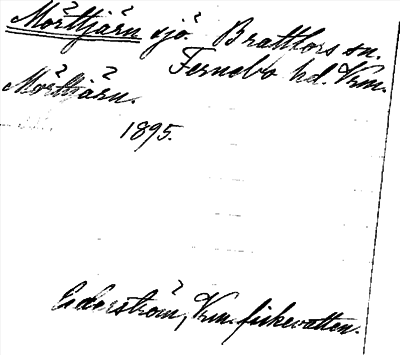 Mörttjärn sjö. Brattfors sn.
Fernebo hd. Vrm.
Mörttjärn.
1895.
Cederström, Vrm. fiskevatten.